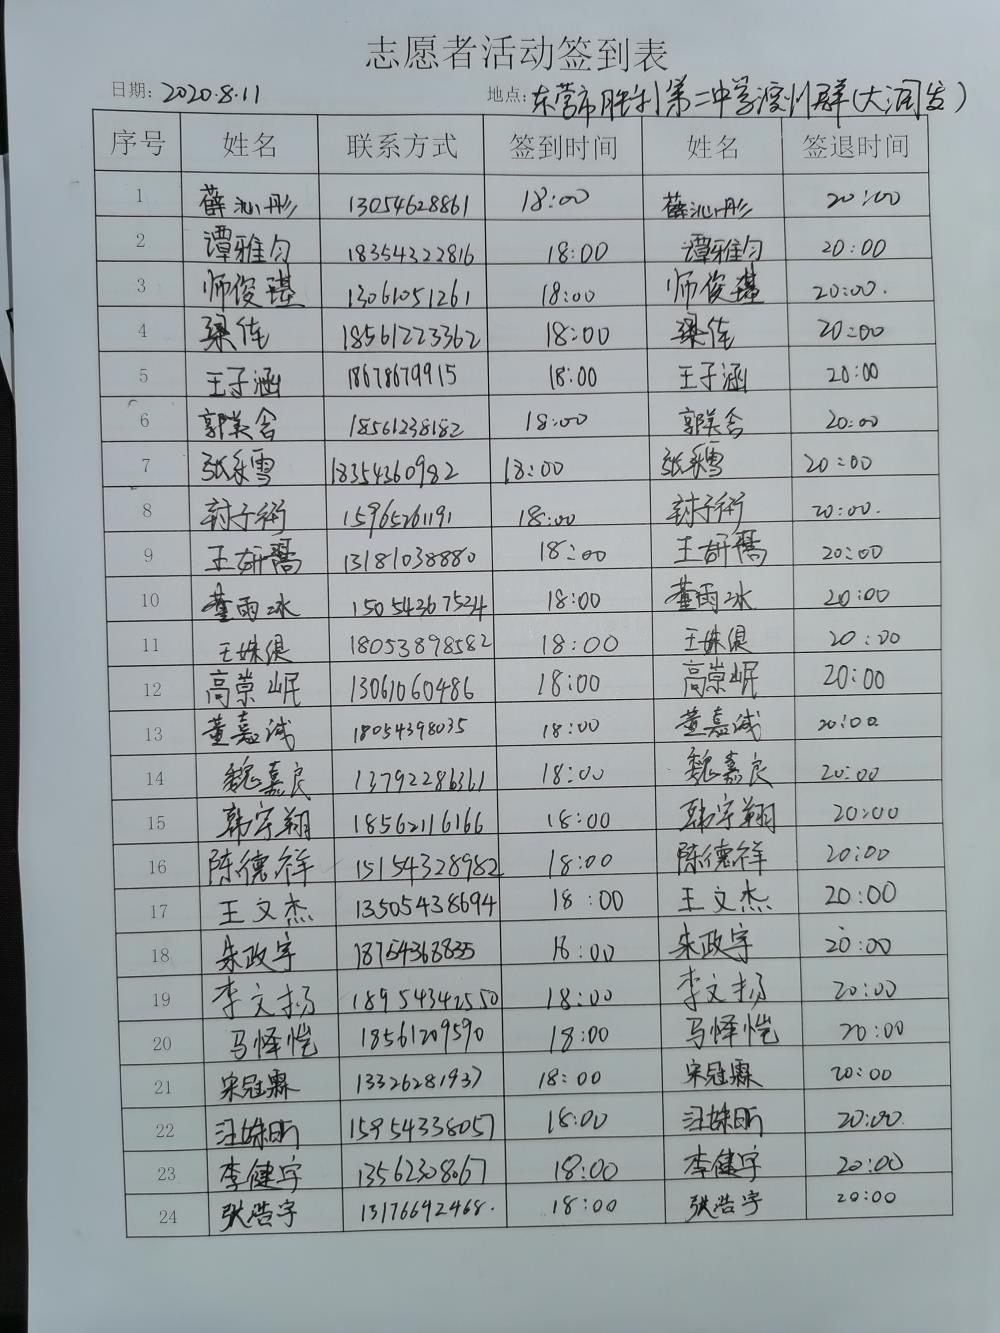 志愿者活动签到表
日期: 2020.8.11 地点: 东营市胜利第二中学渡川群(大润发)
序号 姓名 联系方式 签到时间 姓名 签退时间
1 薛沁彤 13054628861 18:00 薛沁彤 20:00
2 谭雅匀 18354322816 18:00 谭雅匀 20:00
3 师俊琪 13061051261 18:00 师俊琪 20:00.
4 梁佳 18561223362 18:00 梁佳 20:00
5 王子涵 18678679915 18:00 王子涵 20:00
6 郭美含 18561238182 18:00 郭美含 20:00
7 张采雪 18354360982 18:00 张采雪 20:00
8 封子衔 15965261191 18:00 封子衔 20:00.
9 王妍霭 13181038880 18:00 王妍霭 20:00
10 董雨冰 15054267524 18:00 董雨冰 20:00
11 王姝俱 18053898582 18:00 王姝俱 20:00
12 高崇岷 13061060486 18:00 高崇岷 20:00
13 董嘉诚 18054398035 18:00 董嘉诚 20:00
14 魏嘉良 13792286361 18:00 魏嘉良 20:00
15 韩宇翔 18562116166 18:00 韩宇翔 20:00
16 陈德祥 15154328982 18:00 陈德祥 20:00
17 王文杰 13505438694 18:00 王文杰 20:00
18 朱政宇 18754368835 18:00 朱政宇 20:00
19 李文扬 18954342550 18:00 李文扬 20:00
20 马怿恺 18561209590 18:00 马怿恺 20:00
21 宋冠霖 13326281937 18:00 宋冠霖 20:00
22 汪姝昕 15954338057 18:00 汪姝昕 20:00
23 李健宇 13562308067 18:00 李健宇 20:00
24 张浩宇 13176692468. 18:00 张浩宇 20:00